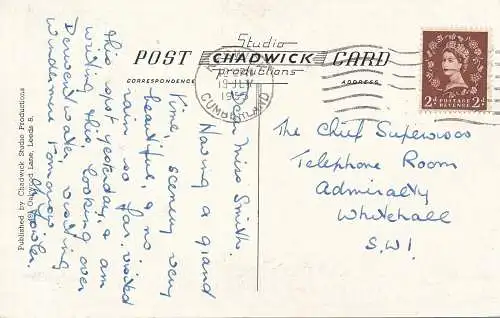 Studio
POST CHADWICK CARD
productions
CORRESPONDENCE
ADDRESS
19 JLY
1955
CUMBERLAND
2D POSTAGE REVENUE 2D
Dear Miss Smith.
Having a grand
time, scenery very
beautiful, & no
rain so far. visited
this spot yesterday, & am
writing this, looking over
Derwentwater, visiting
Windermere tomorrow
The Chief Supervisor
Telephone Room
Admiralty
Whitehall
S.W.1
Published by Chadwick Studio Productions
Oakwood Lane, Leeds 8.